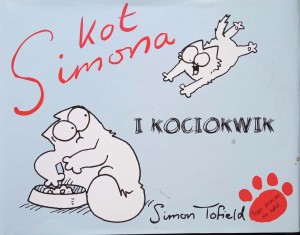 Kot
Simona
I KOCIOKWIK
Simon Tofield